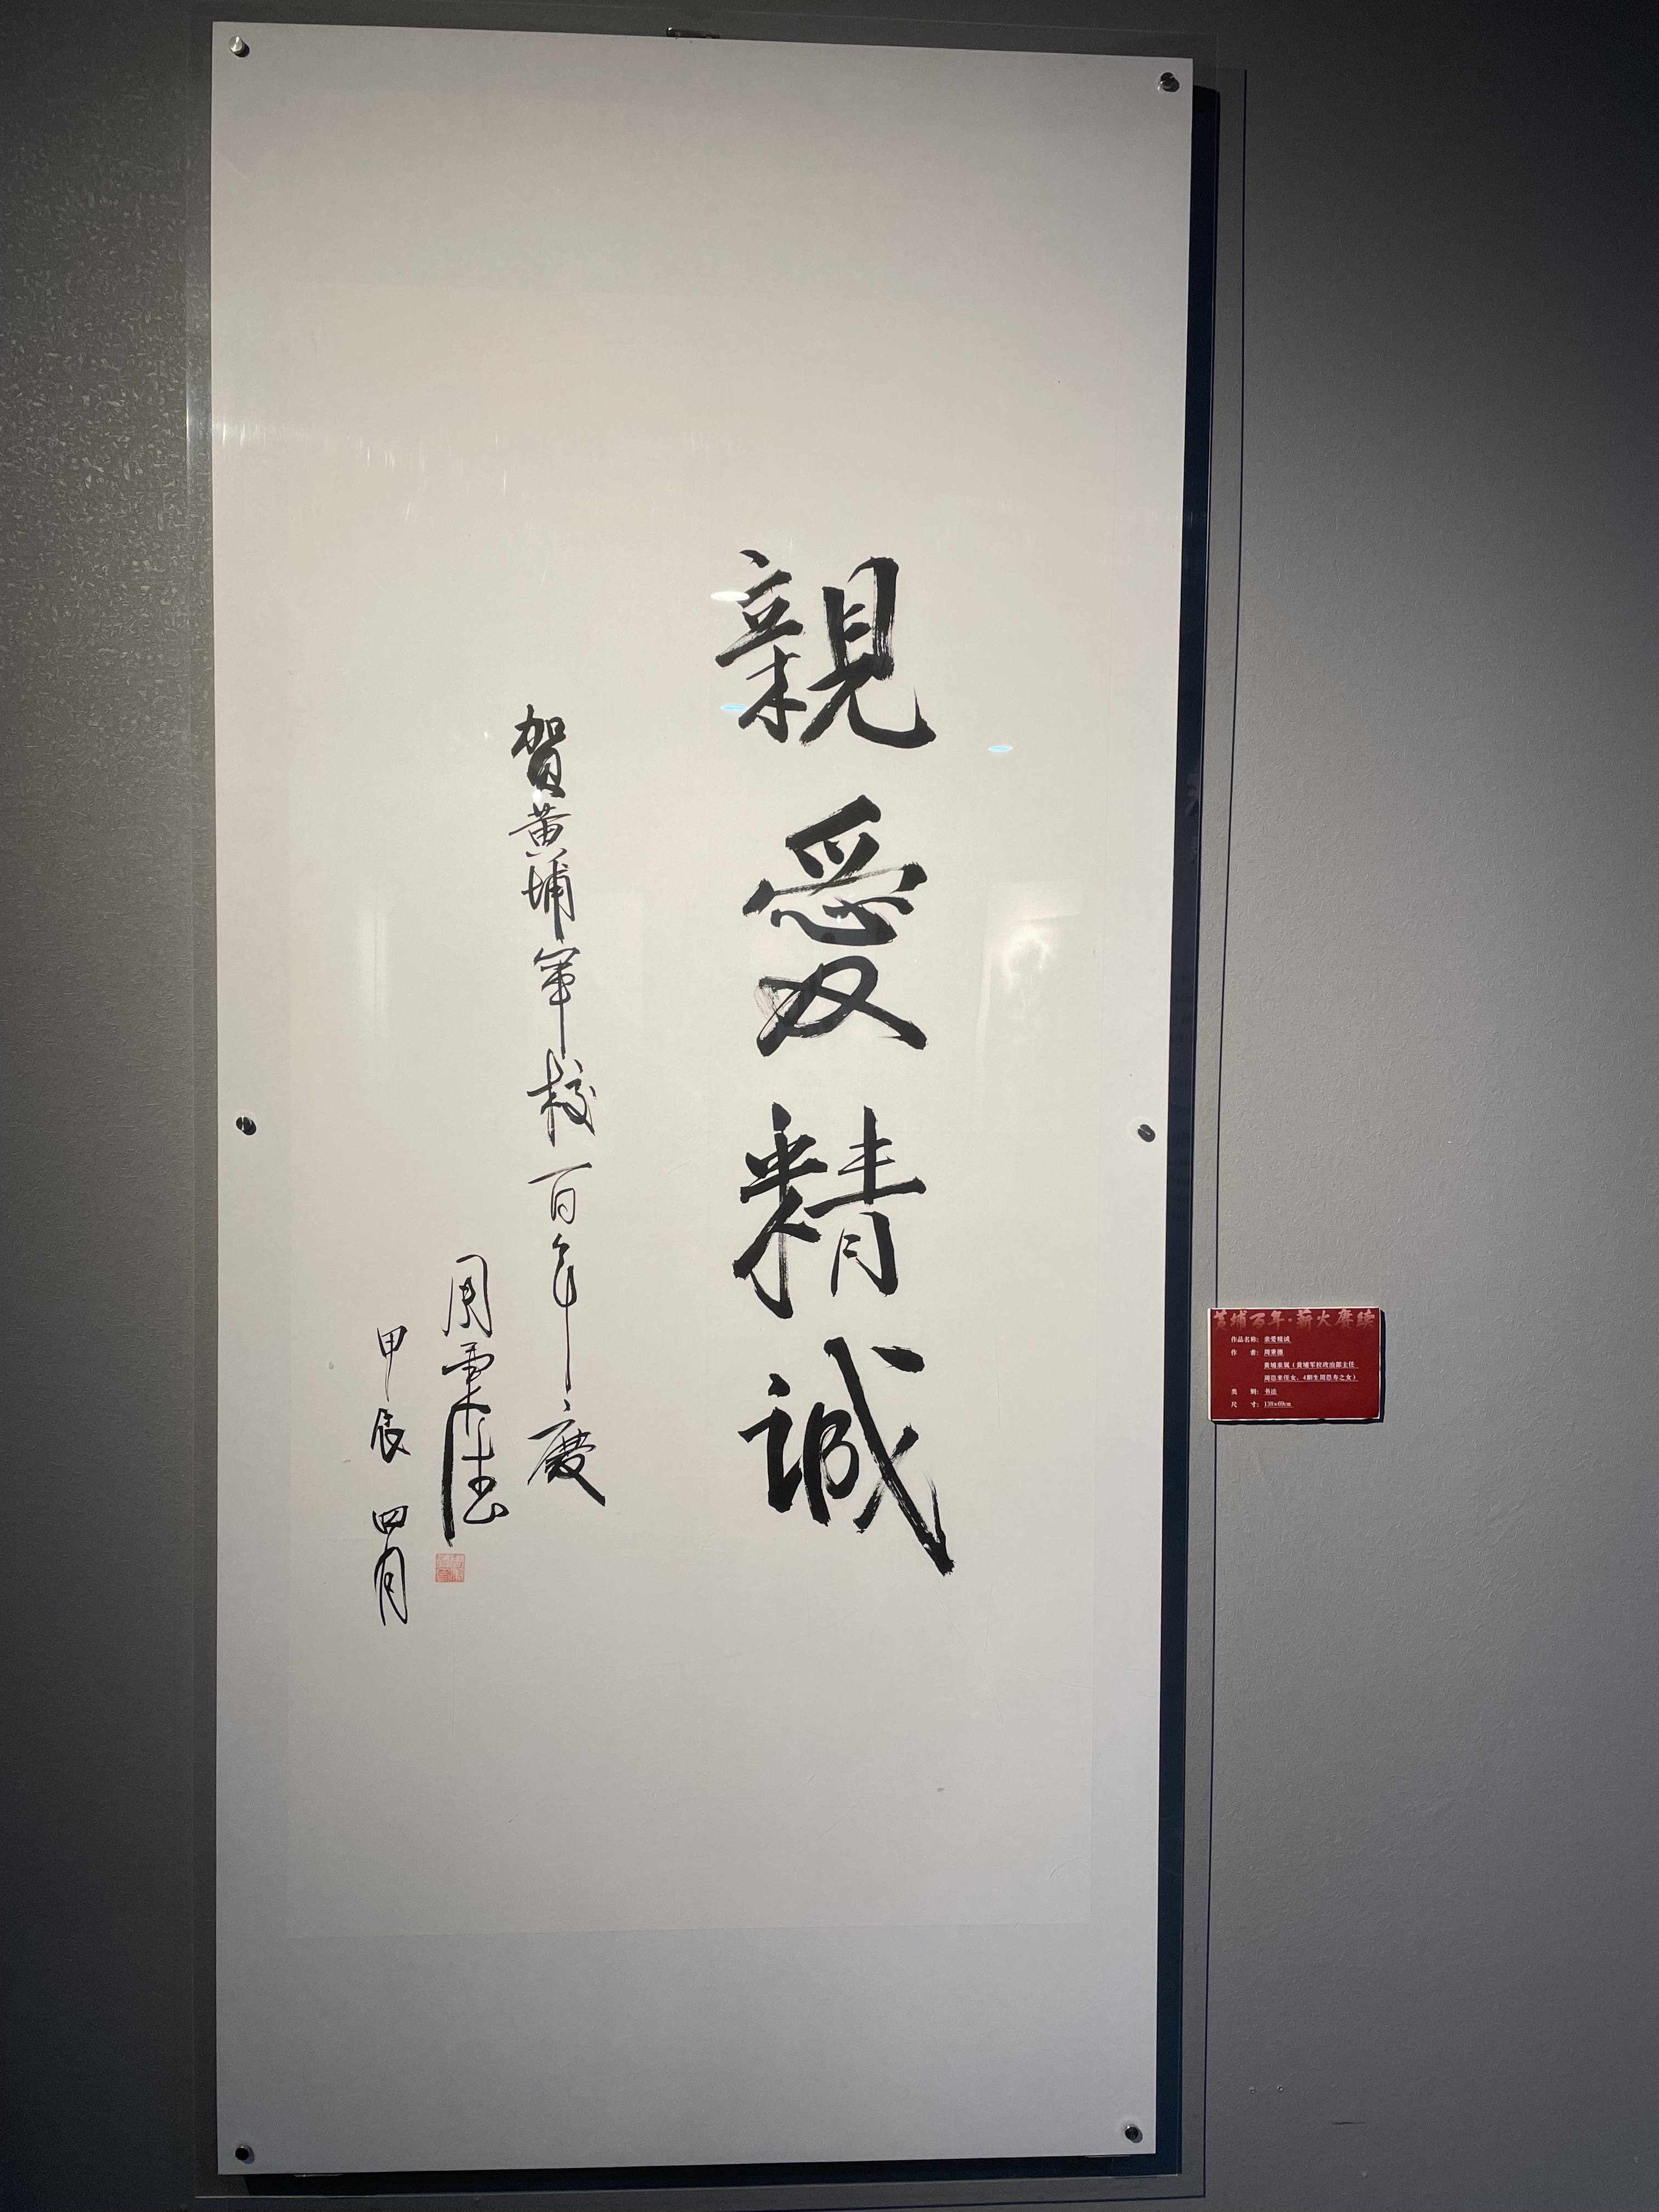 親愛精誠
贺黄埔軍校百年慶
周秉德
甲辰四月
黄埔百年·薪火赓续
作品名称：亲爱精诚
作 者：周秉德
黄埔亲属（黄埔军校政治部主任
周恩来侄女、4期生周恩寿之女）
类 别：书法
尺 寸：138×69cm